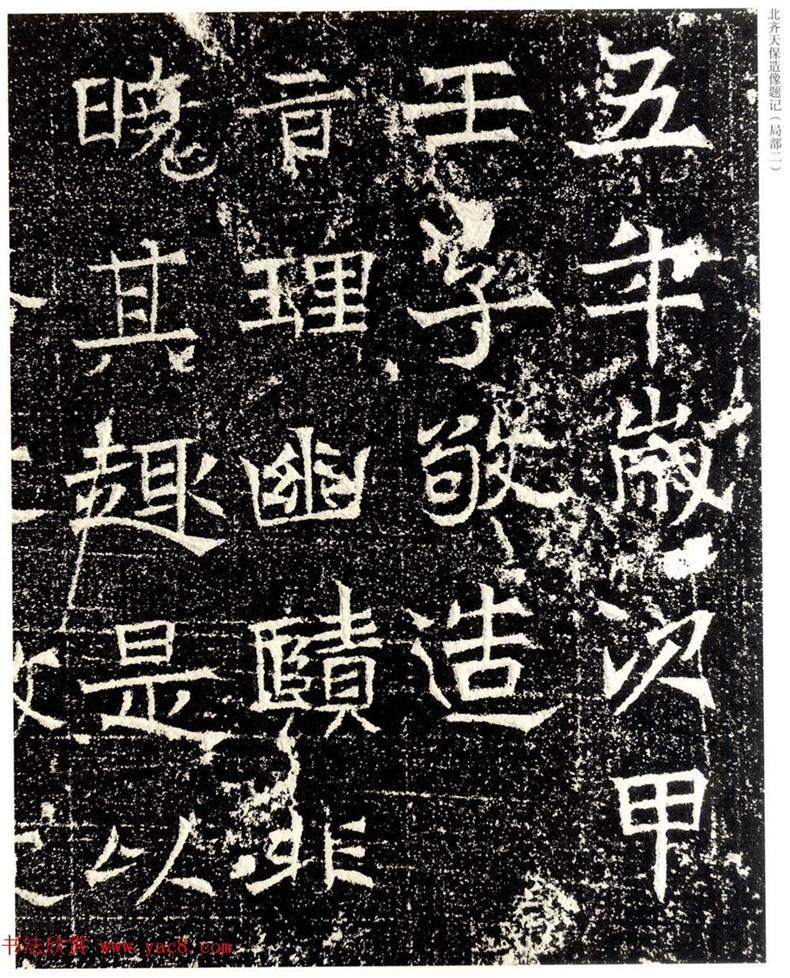 北齐天保造像题记（局部二）
五年歲次甲
壬子敬造
旨理幽賾非
曉其趣是以
书法欣赏 www.yac8.com